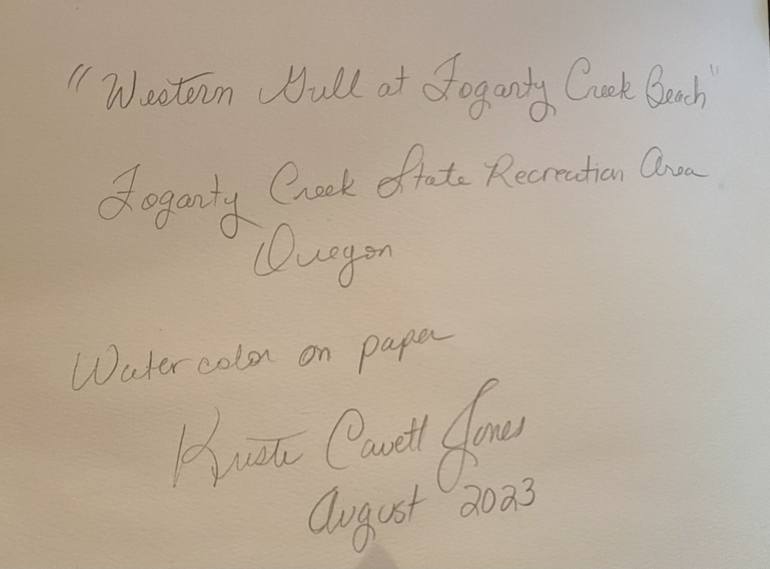 "Western Gull at Fogarty Creek Beach"
Fogarty Creek State Recreation Area
Oregon
Watercolor on paper
Kriste Cavett Jones
August 2023